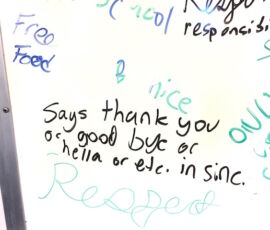 School
Free
Food
responsibi
B nice
Says thank you
or good bye or
hella or etc. in sinc.
Respect